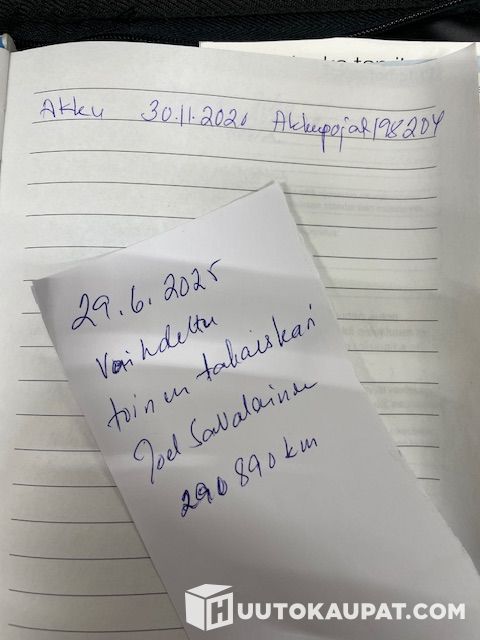 Akku 30.11.2020 Akkupojat 198204
29.6.2025
Vaihdettu
toinen takaiskari
Joel Savolainen
290 890 km
HUUTOKAUPAT.COM